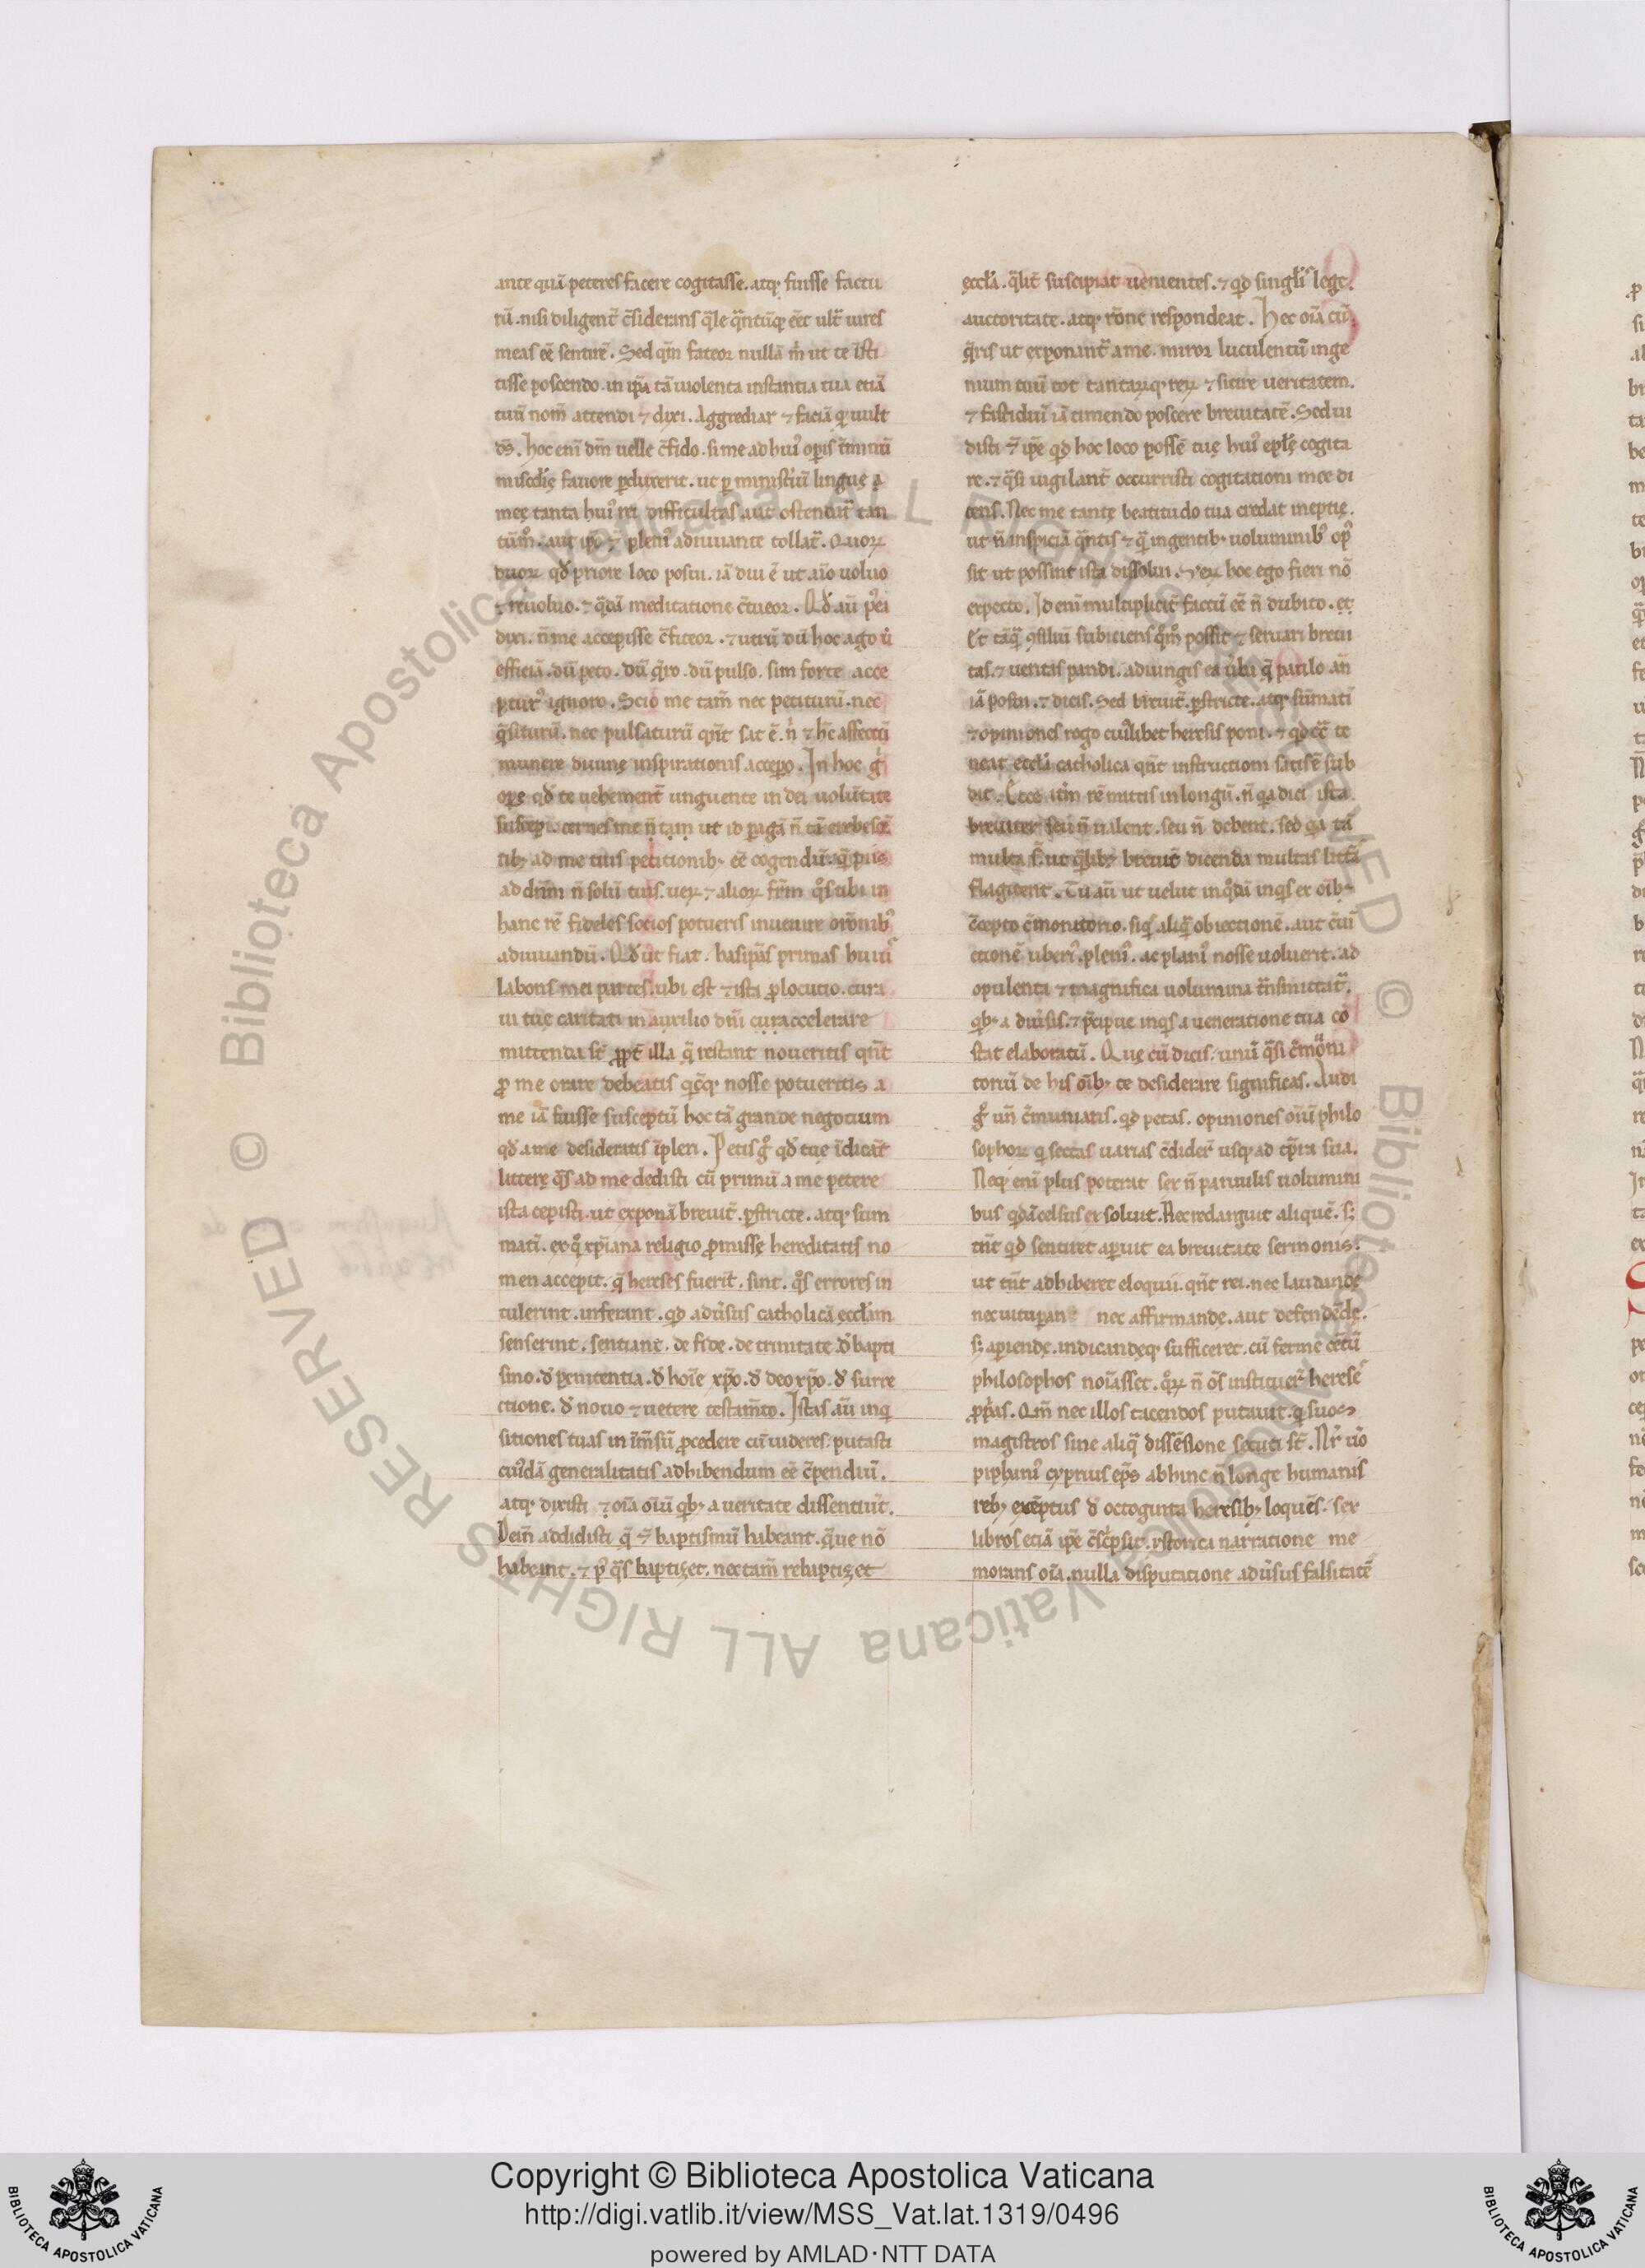 ante quā peteres facere cogitasse. atq; fuisse factu
rū. nisi diligent̄ c̄siderans q̄le q̄ntūq; eēt ult̄ uires
meas eē sentirē. Sed qm̄ fateor nullā m̄ ut te īsti
tisse poscendo. in ip̄a tā uiolenta instantia tua etiā
tuū nom̄ attendi ⁊ dixi. Aggrediar ⁊ faciā q uult
ds̄. hoc eni dm̄ uelle c̄fido. si me ad huiꝰ oꝑis t̄minū
miscd̄ię fauore ꝑduxerit. ut ꝑ ministiū linguę
meę tanta huiꝰ rei difficultas aut ostendat̄ tan
tūm. aut ip̄o ⁊ pleniꝰ adiuuante tollat̄. Quoꝝ
duoꝝ qd̄ priore loco posui. iā diu ē ut aīo uoluo
⁊ reuoluo. ⁊ q̄dā meditatione c̄tueor. Qd̄ aū
dixi. n̄ me accepisse c̄fiteor. ⁊ utrū dū hoc ago
efficiā. dū peto. dū q̄ro. dū pulso. sim forte acce
pturꝰ ignoro. Scio me tam̄ nec petiturū. nec
q̄siturū. nec pulsaturū qn̄t sat ē. n̄ ⁊ hc̄ affectū
munere diuinę inspirationis accepo. In hoc g̊
oꝑe qd̄ te uehement̄ urguente in dei uolūtate
suscepi. cernes me n̄ tam ut id ꝑagā n̄ tā
tib; ad me tuis petitionib; eē cogendū. q̄ piis
ad dn̄m n̄ solū tuis. ueꝝ ⁊ alioꝝ frm̄ qͦs tibi in
hanc rē fideles socios potueris inuenire or̄onibꝰ
adiuuandū. Qd̄ ut fiat. has ip̄as primas huiꝰ
laboris mei partes. ubi est ⁊ ista ꝓlocutio. cura
ui tuę caritati in auxilio dn̄i cura accelerare
mittenda st̄ ꝓpt̄ illa q̄ restant noueritis qn̄t
ꝓ me orare debeatis qcq; nosse potueritis a
me iā fuisse susceptū hoc tā grande negotium
qd̄ a me desideratis īpleri. Petis g̊ qd̄ tuę īdicāt
litterę qͣs ad me dedisti cū primū a me petere
ista cepisti. ut exponā breuit̄. ꝑstricte. atq; sum
matī. ex qͦ xp̄iana religio ꝓmissę hereditatis no
men accepit. q̄ hereses fuerīt. sint. qͦs errores in
tulerint. inferant. qd aduersus catholicā eccl̄iam
senserint. sentiant. de fide. de trinitate. d̄ bapti
smo. d̄ penitentia. d̄ hoīe xp̄o. d̄ deo xp̄o. d̄ surre
ctione. d̄ nouo ⁊ uetere testam̄to. Istas aū inqi
sitiones tuas in īm̄sū ꝓcedere cū uideres. putasti
cuiꝰdā generalitatis adhibendum eē c̄pendiū.
atq; dixisti ⁊ oīa oīū qb; a ueritate dissentiūt.
Dein̄ addidisti q̄ ⁊ baptismū habeant. q̄ue nō
habeant. ⁊ p̄ q̄s baptizet. nec tam̄ rebaptizet
eccl̄ia. q̄lit̄ suscipiat uenientes. ⁊ qd singl̄is lege.
auctoritate. atq; rōne respondeat. Hec oīa cū
q̄ris ut exponant̄ a me. miror luculentū inge
nium tuū tot tantaꝝq; reꝝ ⁊ sitire ueritatem.
⁊ fastidiū iā timendo poscere breuitatē. Sed ui
disti ⁊ ip̄e qd hoc loco possē tuę huiꝰ epl̄ę cogita
re. ⁊ q̄si uigilant̄ occurristi cogitationi mee di
cens. Nec me tantę beatitudo tua credat ineptię.
ut n̄ inspiciā q̄ntis ⁊ q̄ ingentib; uoluminibꝰ opꝰ
sit ut possint ista dissolui. S; ex hoc ego fieri nō
expecto. Id eni multiplicit̄ factū eē n̄ dubito.
Et tāq̄ ꝯsiliū subiciens qͦm possit ⁊ seruari breui
tas. ⁊ ueritas pandi. adiungis ea uba q̄ paulo an̄
iā posui. ⁊ dicis. Sed breuit̄. ꝑstricte. atq; sūmatī
⁊ opiniones rogo cuiꝰlibet heresis poni. ⁊ qd ct̄ te
neat eccl̄ia catholica qn̄t instructioni satis ē sub
dic. Ecce itm̄ rē mittis in longū. n̄ qa dici ista
breuiter seu n̄ ualent. seu n̄ debent. sed qa tā
multa st̄ ut q̄lib; breuit̄ dicenda multas litt̄as
flagitent. Tu aū ut uelut in qͦdā inqs ex oīb;
c̄cepto c̄monitorio. siq aliq̄ obiectionē. aut c̄ui
ctionē uberiꝰ. pleniꝰ. ac planiꝰ nosse uoluerit. ad
opulenta ⁊ magnifica uolumina t̄nsmittat̄.
qb; a diuͥsis. ⁊ p̄cipue inqs a ueneratione tua cō
stat elaboratū. Que cū dicis. unū q̄si c̄moni
toriū de his oīb; te desiderare significas. Audi
g̊ un̄ c̄muniaris. qd petas. opiniones oīū philo
sophoꝝ q sectas uarias c̄dider̄ usq; ad tp̄ra sua.
Neq; eni plus poterat sex n̄ paruulis uolumini
bus qdā celsus exsoluit. Nec redarguit aliquē. s;
tn̄t qd sentiret aꝑuit ea breuitate sermonis.
ut tn̄t adhiberet eloquii. qn̄t rei. nec laudandę
nec uitupan nec affirmandę. aut defendēde.
s; aꝑiendę. indicandęq; sufficeret. cū ferme cētū
philosophos noīasset. qͦꝝ n̄ oēs instituer̄ heresē
ꝓp̄as. Qm̄ nec illos tacendos putauit. q suos
magistros sine aliq̄ dissēsione secuti st̄. Nr̄ uͦo
piphaniꝰ cyprius ep̄s abhinc n̄ longe humanis
reb; exēptus d̄ octoginta heresib; loquēs. sex
libros etiā ip̄e c̄sc̄psit. ystorica narratione me
morans oīa. nulla disputatione aduͥsus falsitatē
Copyright © Biblioteca Apostolica Vaticana
http://digi.vatlib.it/view/MSS_Vat.lat.1319/0496
powered by AMLAD·NTT DATA
BIBLIOTECA APOSTOLICA VATICANA
BIBLIOTECA APOSTOLICA VATICANA
© Biblioteca Apostolica Vaticana ALL RIGHTS RESERVED © Biblioteca Apostolica Vaticana ALL RIGHTS RESERVED